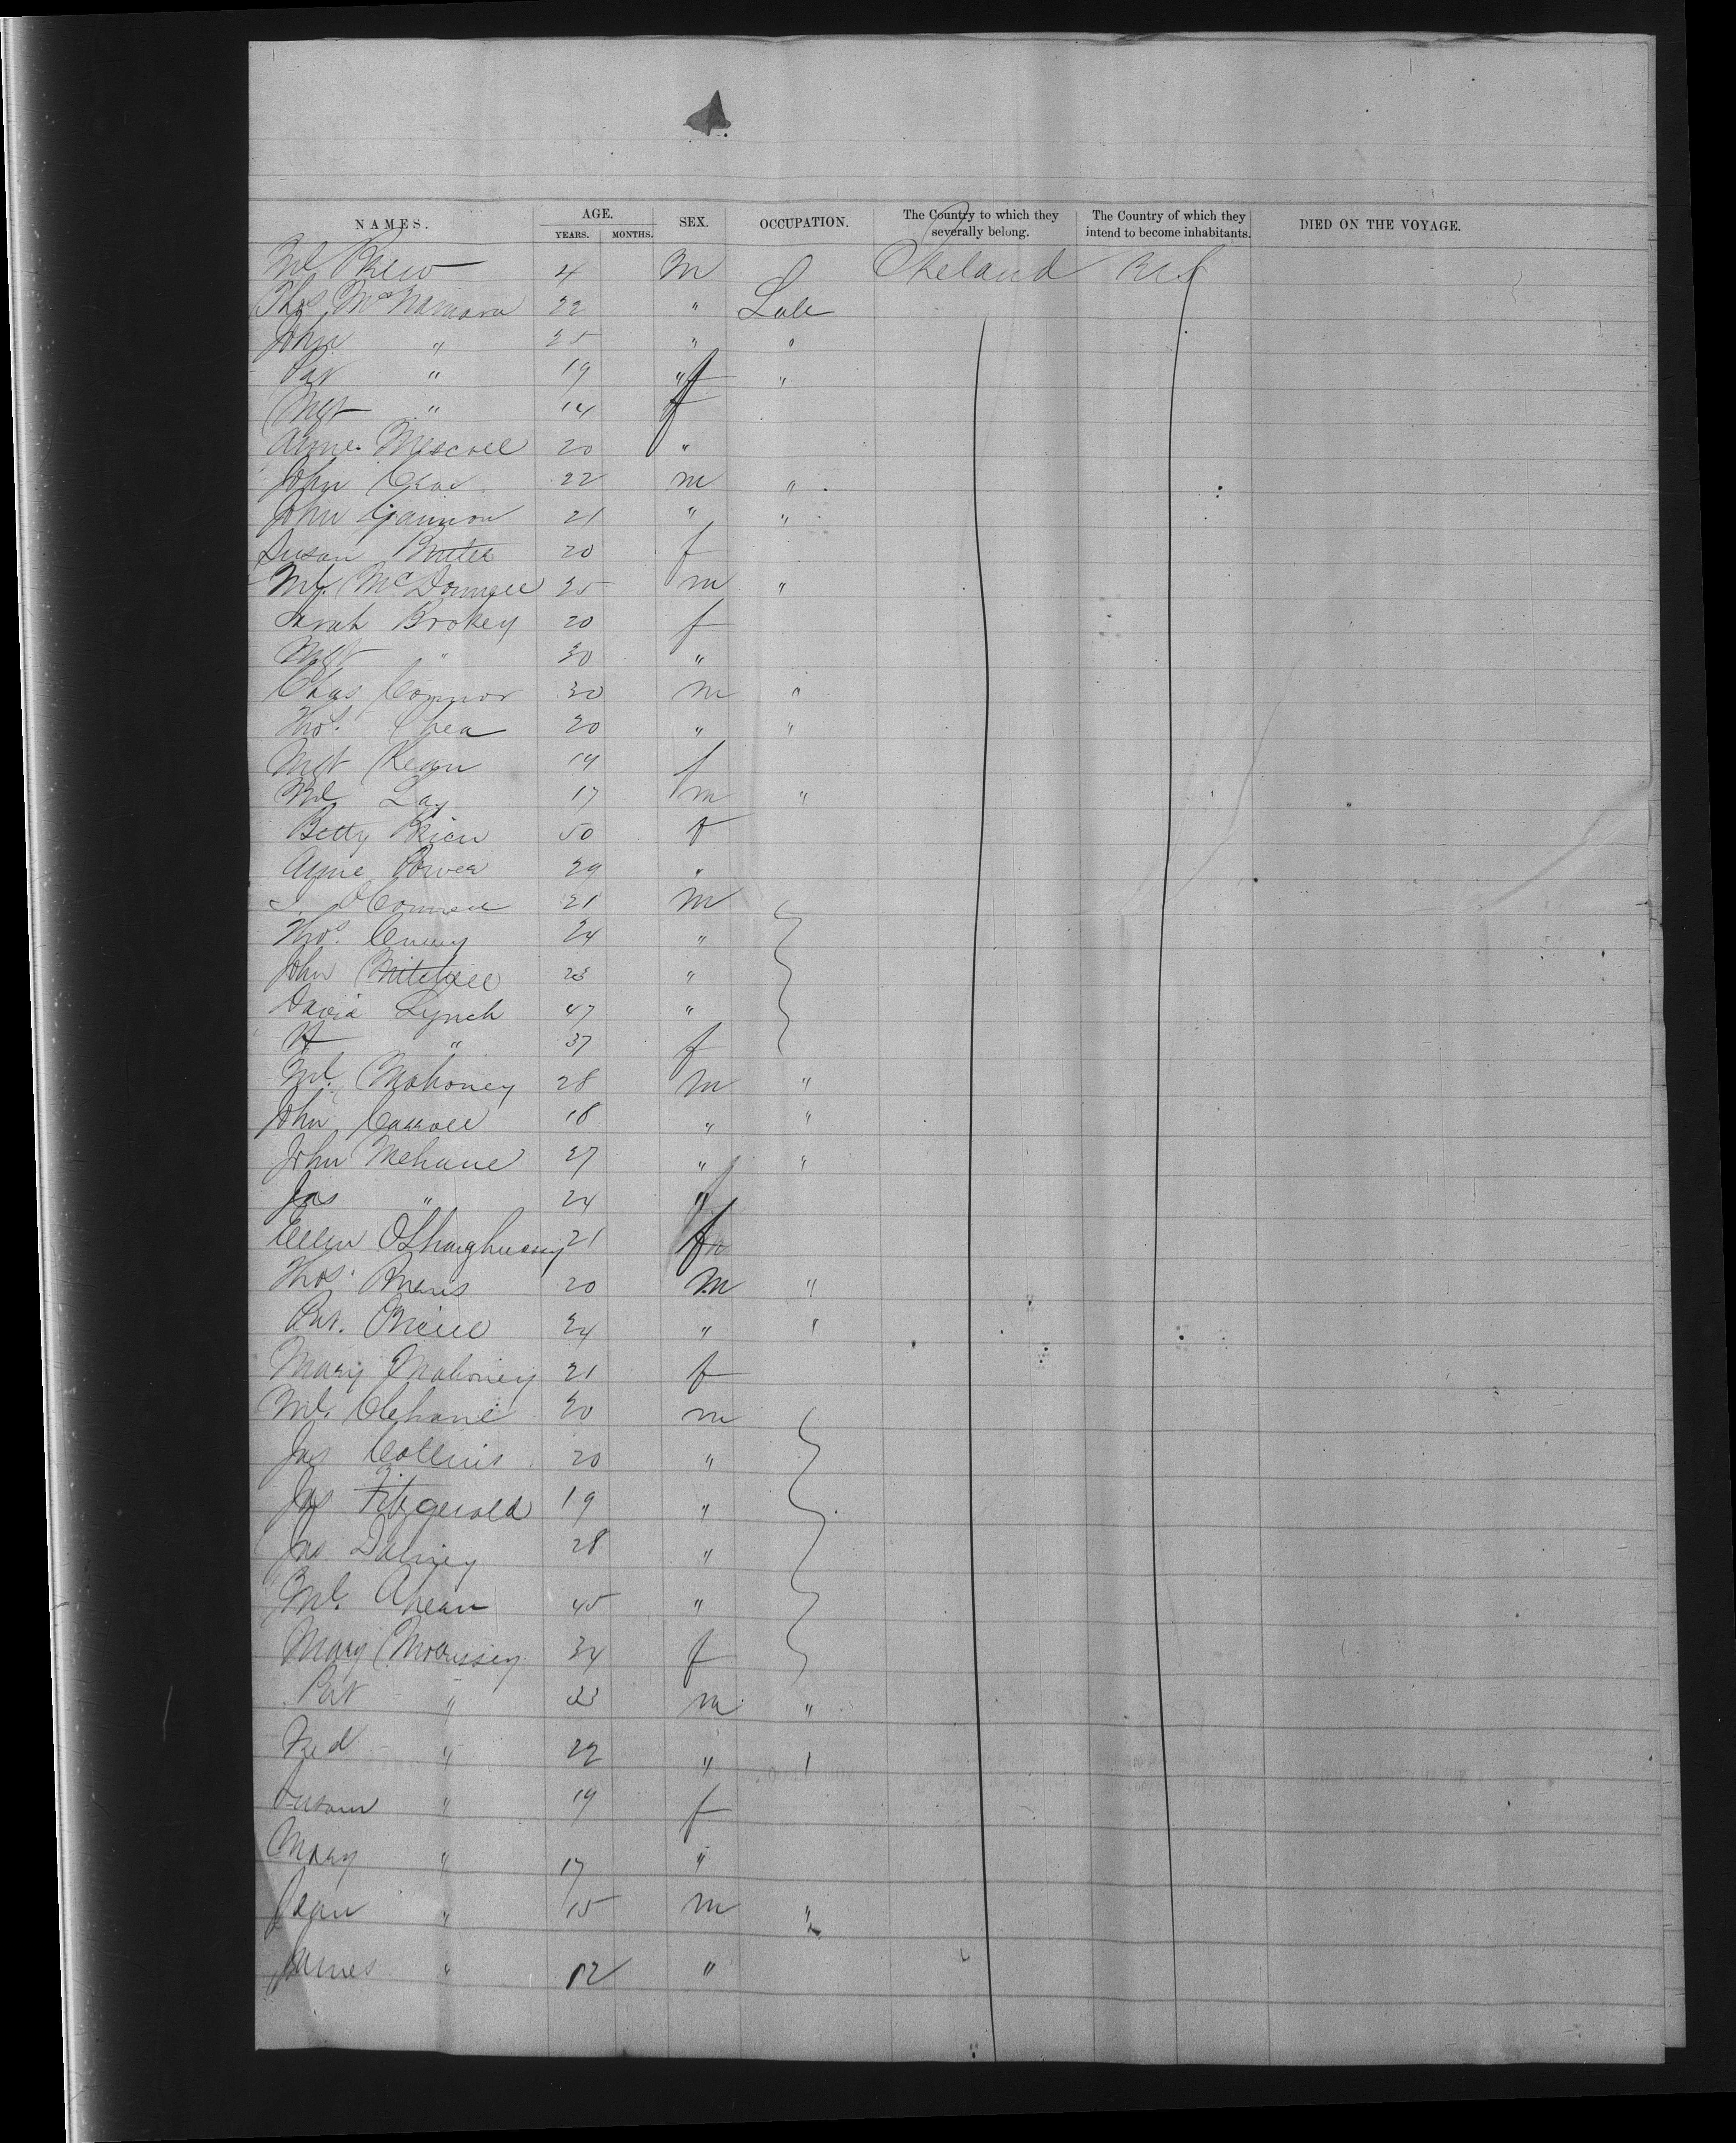 NAMES. AGE. SEX. OCCUPATION. The Country to which they severally belong. The Country of which they intend to become inhabitants. DIED ON THE VOYAGE.
YEARS. MONTHS.
Ml 4 m Ireland U S
Thos McNamara 22 " Lab
John " 25 " "
Pat " 19 " "
Mgt " 14 f
Anne Mescall 20 "
John 22 m "
John Gannon 21 " "
Susan 20 f
Ml. McDonnell 25 m "
Sarah Brokey 20 f
Mgt " 30 "
Chas Connor 30 m "
Thos. Shea 20 " "
Mgt Kean 19 f
Ml 17 m "
Betty 50 f
Anne Power 29 "
O'Connell 21 m
Thos. 24 "
John Mitchell 23 "
David Lynch 47 "
" 37 f
Ml. Mahoney 28 m "
John Carroll 18 " "
John Mehane 27 " "
Jas " 24 "
Ellen OShaughnessy 21 f
Thos. 20 m "
Pat. ONeill 24 " "
Mary Mahoney 21 f
Ml. Clehane 20 m
Jas Collins 20 "
Jas Fitzgerald 19 "
Jas 28 "
Ml. Ahearn 45 "
Mary Morrissey 34 f
Pat " 23 m "
Ned " 22 " "
Susan " 19 f
Mary " 17 "
" 15 m "
James " 12 "